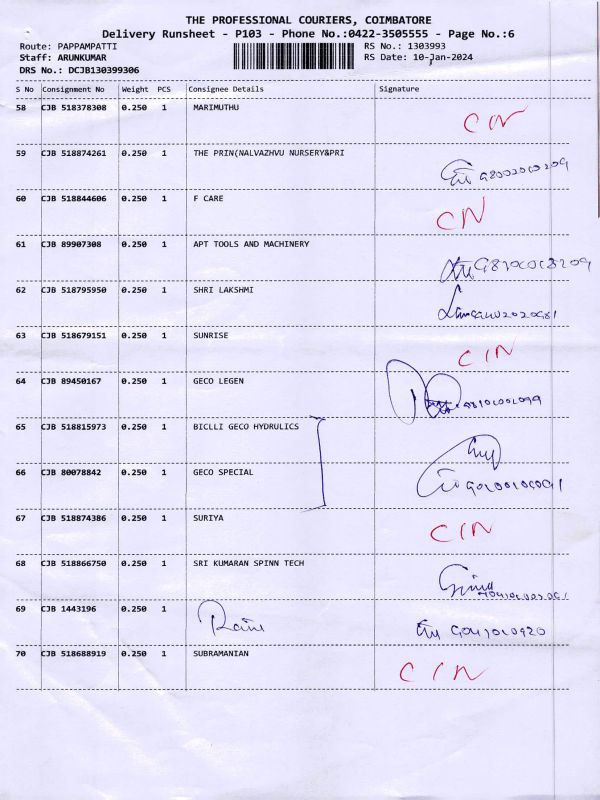 THE PROFESSIONAL COURIERS, COIMBATORE
Delivery Runsheet - P103 - Phone No.:0422-3505555 - Page No.:6
Route: PAPPAMPATTI RS No.: 1303993
Staff: ARUNKUMAR RS Date: 10-Jan-2024
DRS No.: DCJB130399306
S No Consignment No Weight PCS Consignee Details Signature
58 CJB 518378308 0.250 1 MARIMUTHU CIN
59 CJB 518874261 0.250 1 THE PRIN(NALVAZHVU NURSERY&PRI
60 CJB 518844606 0.250 1 F CARE CIN
61 CJB 89907308 0.250 1 APT TOOLS AND MACHINERY
62 CJB 518795950 0.250 1 SHRI LAKSHMI
63 CJB 518679151 0.250 1 SUNRISE CIN
64 CJB 89450167 0.250 1 GECO LEGEN
65 CJB 518815973 0.250 1 BICLLI GECO HYDRULICS
66 CJB 80078842 0.250 1 GECO SPECIAL
67 CJB 518874386 0.250 1 SURIYA CIN
68 CJB 518866750 0.250 1 SRI KUMARAN SPINN TECH
69 CJB 1443196 0.250 1
70 CJB 518688919 0.250 1 SUBRAMANIAN CIN